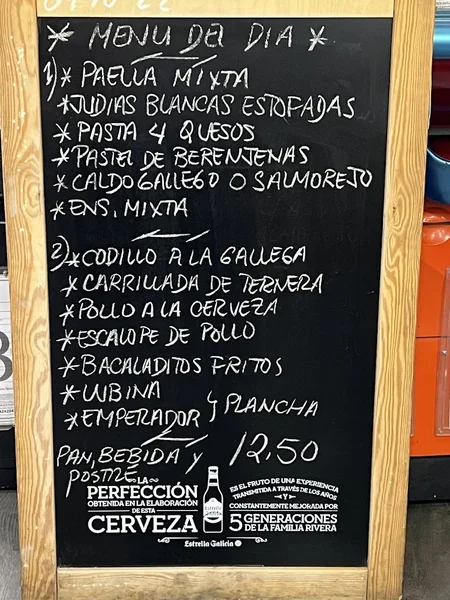 * MENU DEL DIA *
1) * PAELLA MIXTA
* JUDIAS BLANCAS ESTOFADAS
* PASTA 4 QUESOS
* PASTEL DE BERENJENAS
* CALDO GALLEGO O SALMOREJO
* ENS. MIXTA
2) * CODILLO A LA GALLEGA
* CARRILLADA DE TERNERA
* POLLO A LA CERVEZA
* ESCALOPE DE POLLO
* BACALADITOS FRITOS
* LUBINA
* EMPERADOR } PLANCHA
PAN, BEBIDA Y 12,50
POSTRE
LA
PERFECCIÓN
OBTENIDA EN LA ELABORACIÓN
DE ESTA
CERVEZA
Estrella Galicia
ES EL FRUTO DE UNA EXPERIENCIA
TRANSMITIDA A TRAVÉS DE LOS AÑOS
Y
CONSTANTEMENTE MEJORADA POR
5 GENERACIONES
DE LA FAMILIA RIVERA